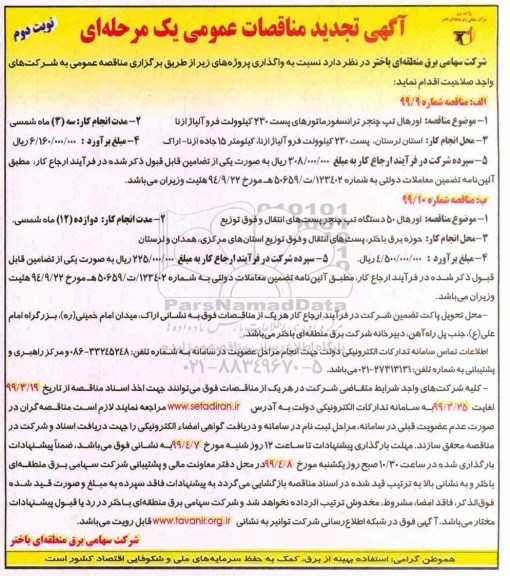 آگهی تجدید مناقصات عمومی یک مرحله‌ای
نوبت دوم
شرکت سهامی برق منطقه‌ای باختر در نظر دارد نسبت به واگذاری پروژه‌های زیر از طریق برگزاری مناقصه عمومی به شرکت‌های
واجد صلاحیت اقدام نماید:
الف: مناقصه شماره ۹۹/۹
۱- موضوع مناقصه: اورهال تپ چنجر ترانسفورماتورهای پست ۲۳۰ کیلوولت فرو آلیاژ ازنا ۲- مدت انجام کار: سه (۳) ماه شمسی
۳- محل انجام کار: استان لرستان، پست ۲۳۰ کیلوولت فرو آلیاژ ازنا، کیلومتر ۱۵ جاده ازنا - اراک ۴- مبلغ برآورد : ۶/۱۶۰/۰۰۰/۰۰۰ ریال
۵- سپرده شرکت در فرآیند ارجاع کار به مبلغ ۳۰۸/۰۰۰/۰۰۰ ریال به صورت یکی از تضامین قابل قبول ذکر شده در فرآیند ارجاع کار، مطابق
آئین‌نامه تضمین معاملات دولتی به شماره ۱۲۳۴۰۲/ت۵۰۶۵۹هـ مورخ ۹۴/۹/۲۲ هئیت وزیران می‌باشد.
ب: مناقصه شماره ۹۹/۱۰
۱- موضوع مناقصه: اورهال ۵۰ دستگاه تپ چنجر پست‌های انتقال و فوق توزیع ۲- مدت انجام کار: دوازده (۱۲) ماه شمسی.
۳- محل انجام کار: حوزه برق باختر، پست‌های انتقال و فوق توزیع استان‌های مرکزی، همدان و لرستان
۴- مبلغ برآورد : ۴/۵۰۰/۰۰۰/۰۰۰ ریال. ۵- سپرده شرکت در فرآیند ارجاع کار به مبلغ ۲۲۵/۰۰۰/۰۰۰ ریال به صورت یکی از تضامین قابل
قبول ذکر شده در فرآیند ارجاع کار، مطابق آئین‌نامه تضمین معاملات دولتی به شماره ۱۲۳۴۰۲/ت۵۰۶۵۹هـ مورخ ۹۴/۹/۲۲ هئیت
وزیران می‌باشد.
- محل تحویل پاکت تضمین شرکت در فرآیند ارجاع کار هر یک از مناقصات فوق به نشانی اراک، میدان امام خمینی(ره)، بزرگراه امام
علی(ع)، جنب پل راه‌آهن، دبیرخانه شرکت برق منطقه‌ای باختر می‌باشد.
اطلاعات تماس سامانه تدارکات الکترونیکی دولت جهت انجام مراحل عضویت در سامانه به شماره تلفن: ۳۳۲۴۵۲۴۸-۰۸۶ و مرکز راهبری و
پشتیبانی به شماره تلفن: ۲۷۳۱۳۱۳۱-۰۲۱ می‌باشد.
- کلیه شرکت‌های واجد شرایط متقاضی شرکت در هر یک از مناقصات فوق می‌توانند جهت اخذ اسناد مناقصه از تاریخ ۹۹/۳/۱۹
لغایت ۹۹/۳/۲۵ به سامانه تدارکات الکترونیکی دولت به آدرس www.setadiran.ir مراجعه نمایند لازم است مناقصه‌گران در
صورت عدم عضویت قبلی در سامانه، مراحل ثبت نام در سامانه و دریافت گواهی امضاء الکترونیکی را جهت دریافت اسناد و شرکت در
مناقصه محقق سازند. مهلت بارگذاری پیشنهادات تا ساعت ۱۲ روز شنبه مورخ ۹۹/۴/۷ به نشانی فوق می‌باشد، ضمناً پیشنهادات
بارگذاری شده در ساعت ۱۰/۳۰ صبح روز یکشنبه مورخ ۹۹/۴/۸ در محل دفتر معاونت مالی و پشتیبانی شرکت سهامی برق منطقه‌ای
باختر و به نشانی بالا به ترتیب قید شده در اسناد مناقصه بازگشایی می‌گردد به پیشنهادات فاقد سپرده به مبلغ و صورت قید شده
فوق‌الذکر، فاقد امضا، مشروط، مخدوش ترتیب اثر داده نخواهد شد و شرکت سهامی برق منطقه‌ای باختر در رد یا قبول پیشنهادات
مختار می‌باشد. آگهی فوق در شبکه اطلاع‌رسانی شرکت توانیر به نشانی www.tavanir.org.ir قابل رویت می‌باشد.
شرکت سهامی برق منطقه‌ای باختر
هموطن گرامی: استفاده بهینه از برق، کمک به حفظ سرمایه‌های ملی و شکوفایی اقتصاد کشور است
ParsNamadData
۰۲۱-۸۸۳۴۹۶۷۰-۵